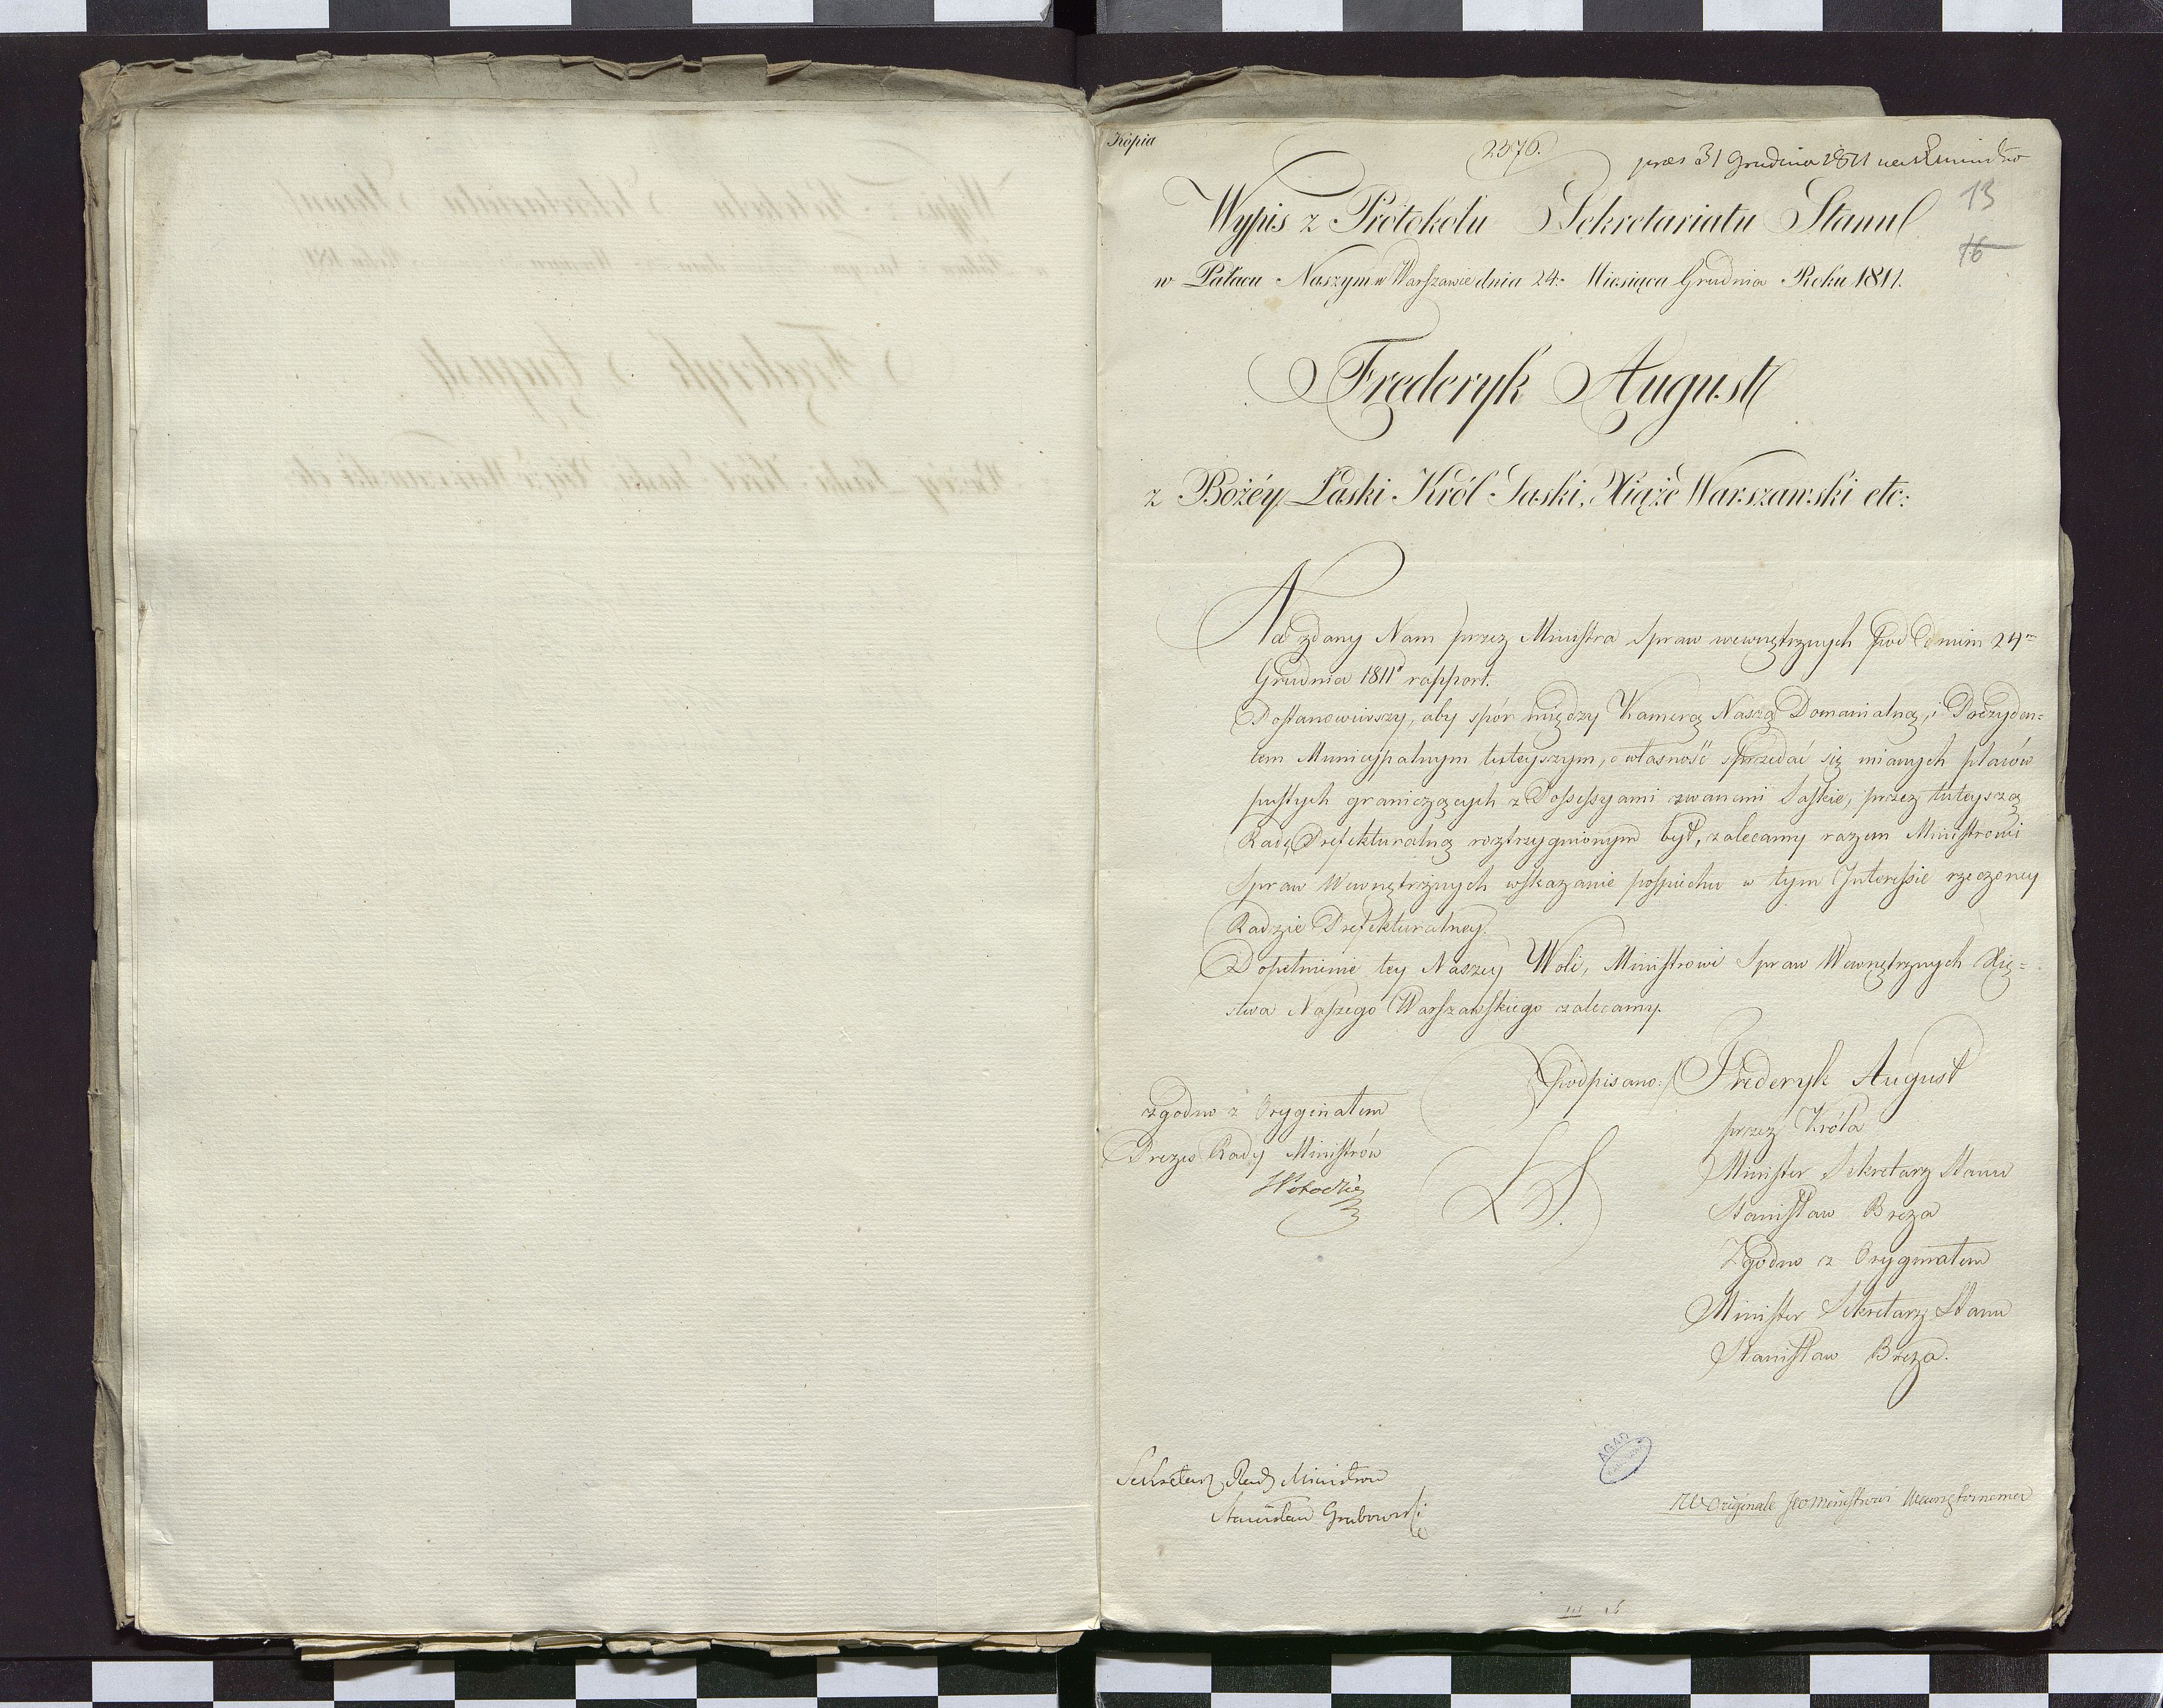 Kopia
2376.
præs 31 Grudnia 1811
13
16
Wypis z Protokołu Sekretariatu Stanu
w Pałacu Naszym w Warszawie dnia 24. Miesiąca Grudnia Roku 1811.
Frederyk August
z Bożéy Łaski Król Saski, Xiążę Warszawski etc:
Na zdany Nam przez Ministra Spraw wewnętrznych pod dniem 24m
Grudnia 1811 rapport.
Postanowiwszy, aby spór między Kamerą Naszą Domanialną, i Prezyden=
tem Municypalnym tuteyszym, o własność sprzedać się mianych placów
pustych graniczących z Possessyami zwanemi Saskie, przez tuteyszą
Radę Prefekturalną roztrzygnionym był, zalecamy razem Ministrowi
Spraw Wewnętrznych wskazanie pospiechu w tym Interessie rzeczoney
Radzie Prefekturalney.
Dopełnienie tey Naszey Woli, Ministrowi Spraw Wewnętrznych Xię=
stwa Naszego Warszawskiego zalecamy.
podpisano:/ Frederyk August
zgodno z Oryginałem
przez Króla
Prezes Rady Ministrów
Minister Sekretarz Stanu
LS.
Stanisław Breza
Zgodno z Oryginałem
Minister Sekretarz Stanu
Stanisław Breza.
AGAD
Sekretarz Rady Ministrów
Stanisław Grabowski
W Originale JW Ministrowi Wewnętrznemu
III 15